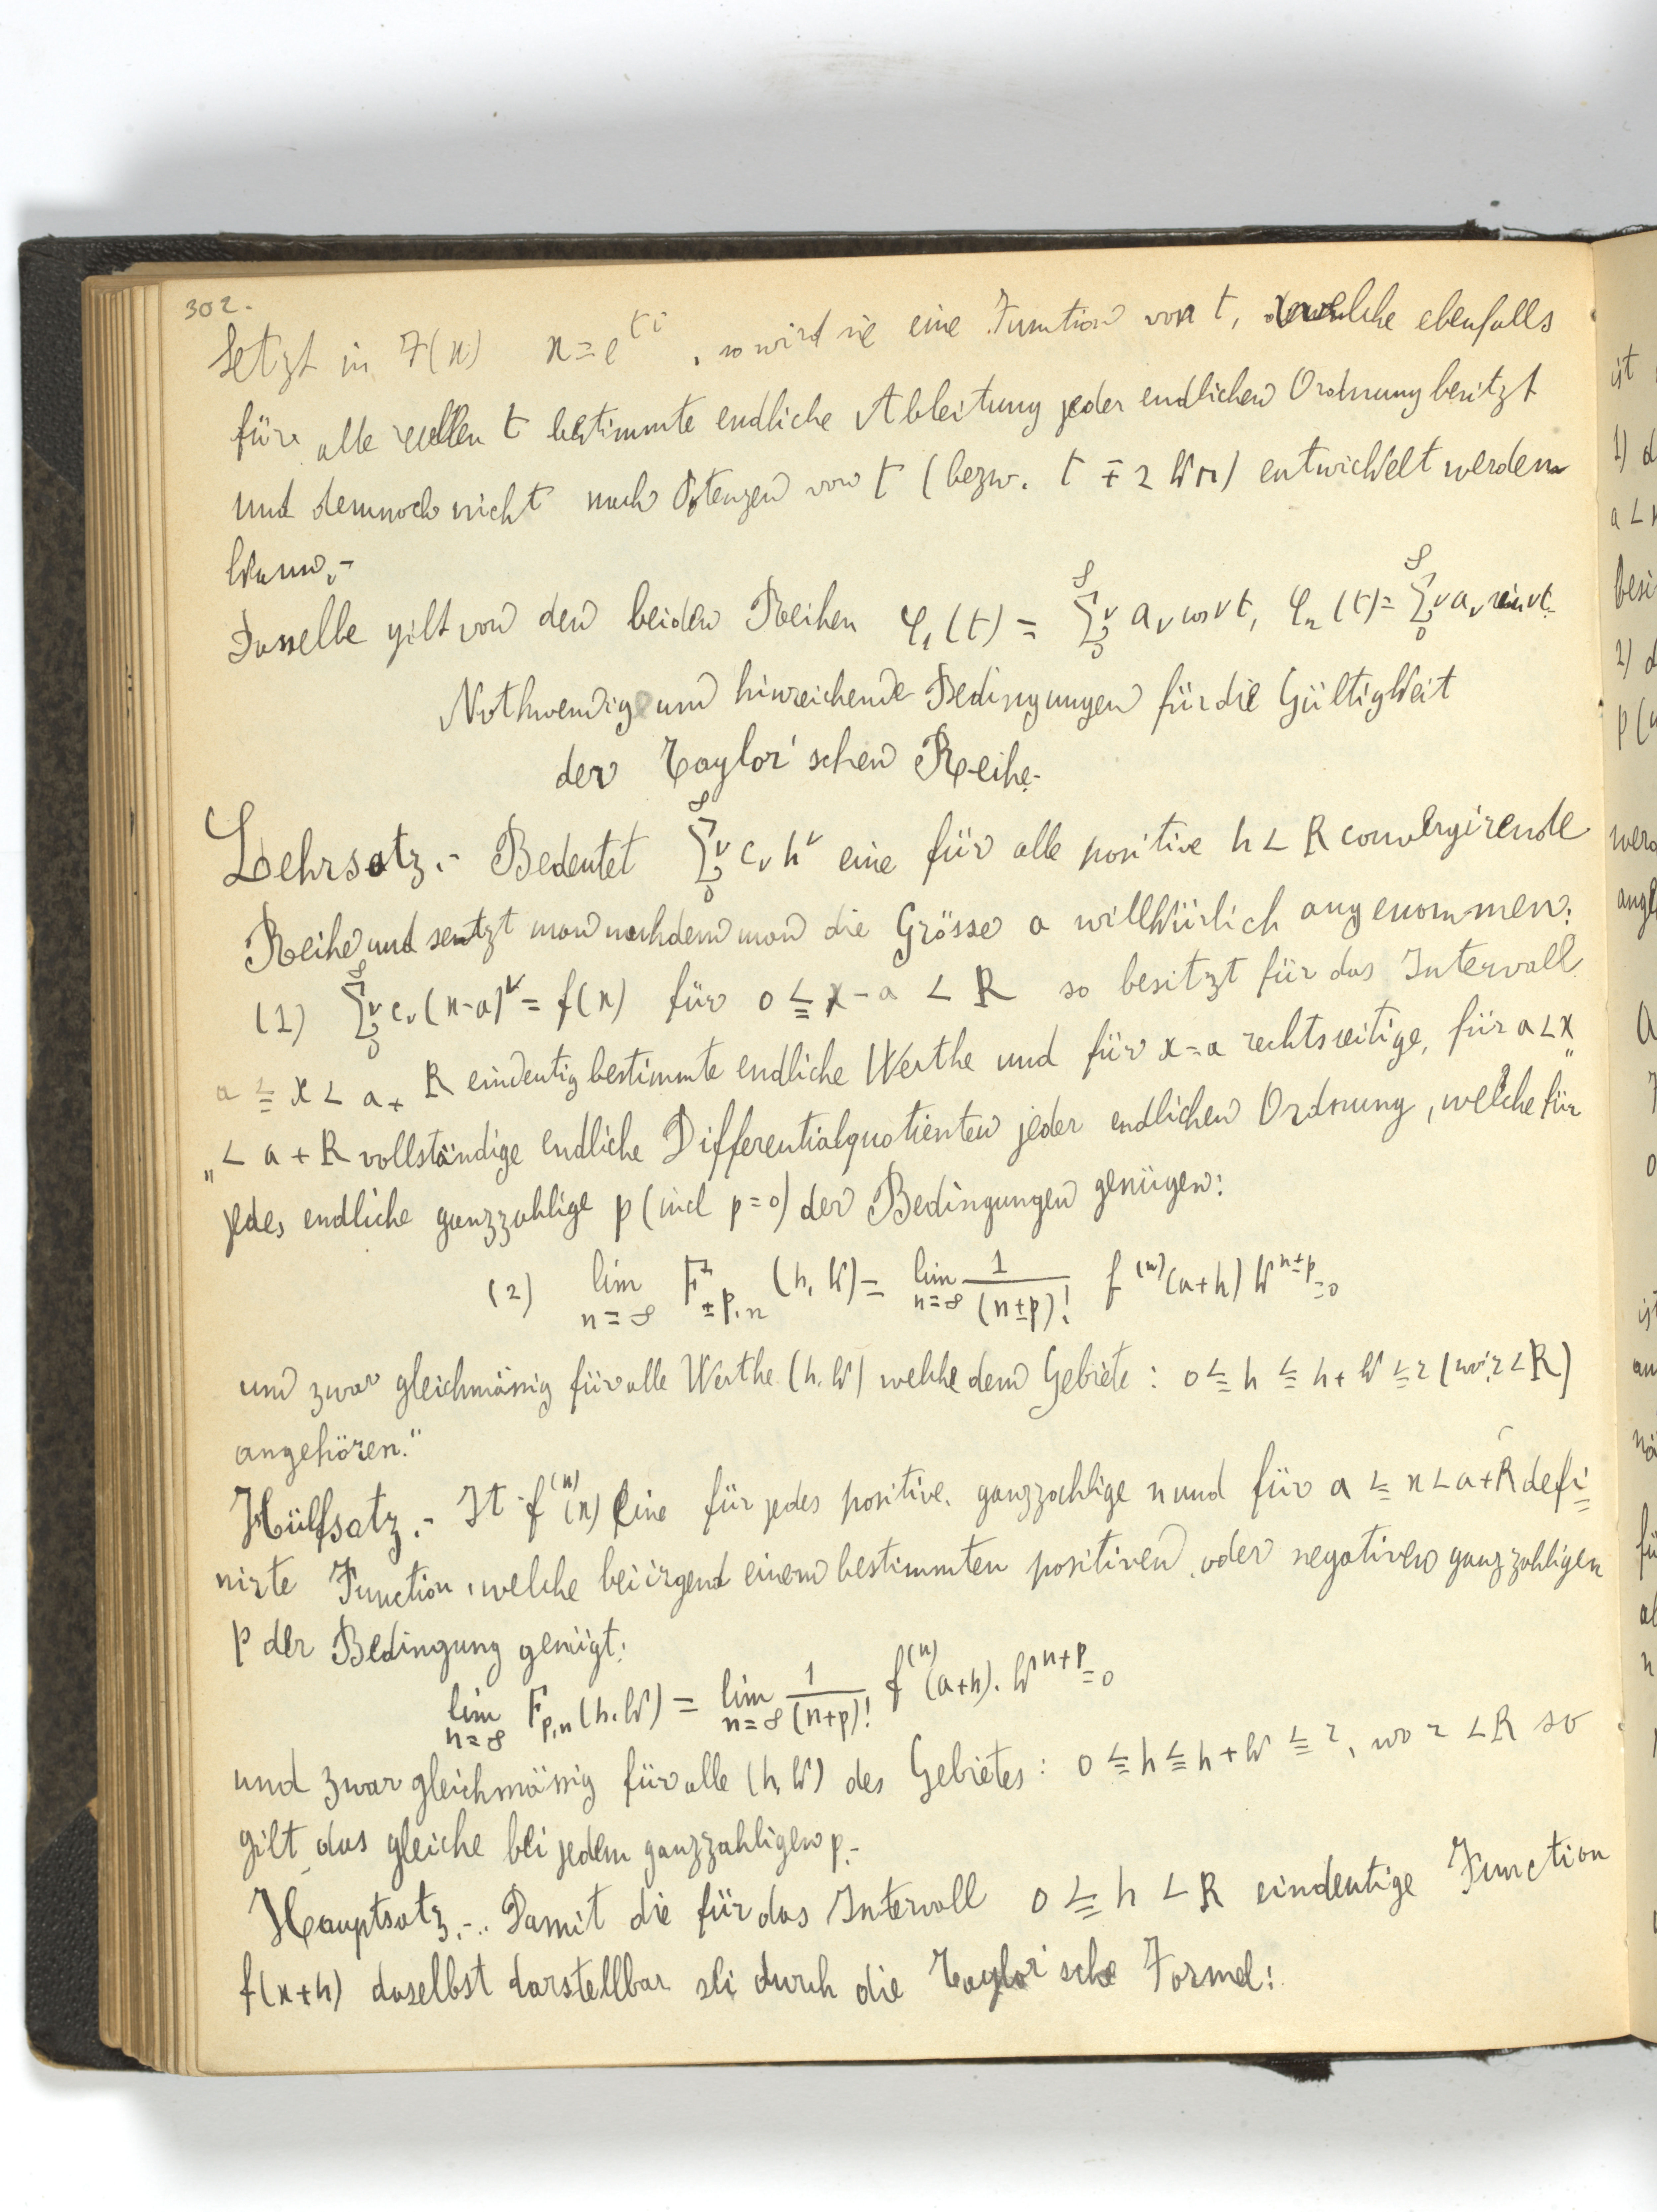 302.
Setzt in F(x) x = e^{ti}, so wird sie eine Function von t, welche ebenfalls
für alle reellen t bestimmte endliche Ableitung jeder endlichen Ordnung besitzt
und dennoch nicht nach Potenzen von t (bezw. t ∓ 2kπ) entwickelt werden
kann.-
Dasselbe gilt von den beiden Reihen φ₁(t) = ∑₀^∞ᵛ aᵥ cos νt, φ₂(t) = ∑₀^∞ᵛ aᵥ sin νt.
Nothwendige und hinreichende Bedingungen für die Gültigkeit
der Taylor'schen Reihe.-
Lehrsatz.- Bedeutet ∑₀^∞ᵛ cᵥ hᵛ eine für alle positive h < R convergirende
Reihe und setzt man nachdem man die Grösse a willkürlich angenommen:
(1) ∑₀^∞ᵛ cᵥ (x-a)ᵛ = f(x) für 0 ≦ x-a < R so besitzt für das Intervall
a ≦ x < a + R eindeutig bestimmte endliche Werthe und für x=a rechtsseitige, für a < x "
" < a + R vollständige endliche Differentialquotienten jeder endlichen Ordnung, welche für
jedes endliche ganzzahlige p (incl p=0) der Bedingungen genügen:
(2) lim_{n=∞} F_{±p,n} (h, k) = lim_{n=∞} 1/(n±p)! f^{(n)}(a+h) k^{n±p} = 0
und zwar gleichmässig für alle Werthe (h, k) welche dem Gebiete: 0 ≦ h ≦ h + k ≦ r (wo: r < R)
angehören."
Hülfsatz.- Ist f^{(n)}(x) eine für jedes positive, ganzzahlige n und für a ≦ x < a + R defi=
nirte Function, welche bei irgend einem bestimmten positiven oder negativen ganzzahligen
p der Bedingung genügt:
lim_{n=∞} F_{p,n}(h, k) = lim_{n=∞} 1/(n+p)! f^{(n)}(a+h). k^{n+p} = 0
und zwar gleichmässig für alle (h, k) des Gebietes: 0 ≦ h ≦ h + k ≦ r, wo r < R so
gilt das gleiche bei jedem ganzzahligen p.-
Hauptsatz.-. Damit die für das Intervall 0 ≦ h < R eindeutige Function
f(x+h) daselbst darstellbar sei durch die Taylor'sche Formel: